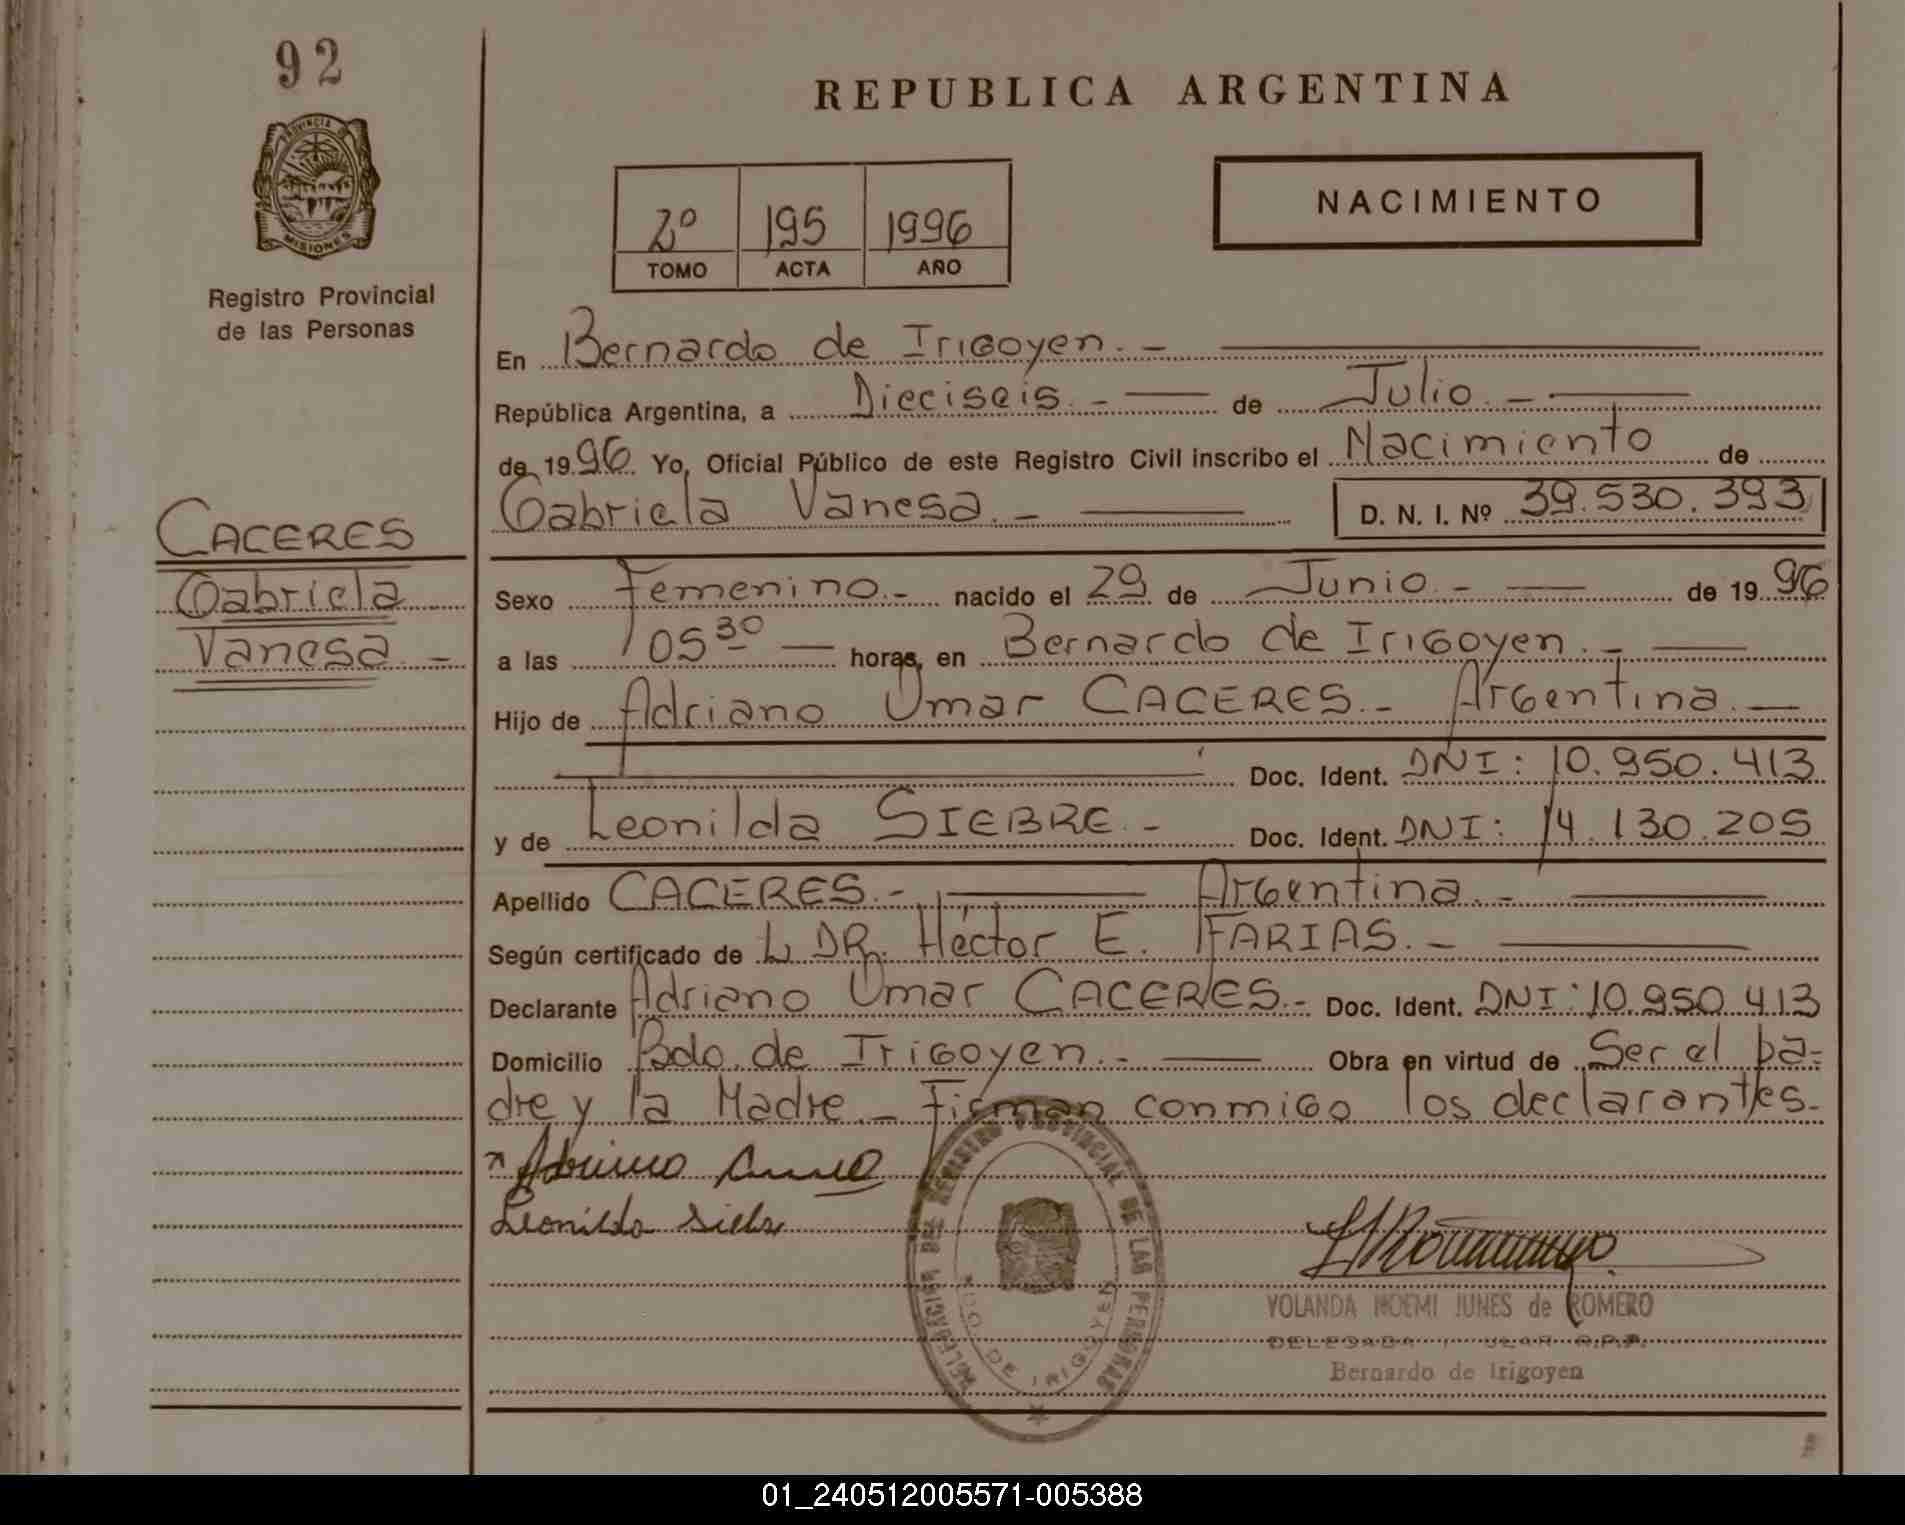 92
REPUBLICA ARGENTINA
PROVINCIA DE
MISIONES
Registro Provincial
de las Personas
2º 195 1996
TOMO ACTA AÑO
NACIMIENTO
En Bernardo de Irigoyen.-
República Argentina, a Dieciseis.- de Julio.-
de 1996. Yo, Oficial Público de este Registro Civil inscribo el Nacimiento de
Gabriela Vanesa.- D. N. I. Nº 39.530.393
CACERES
Gabriela
Vanesa.-
Sexo Femenino.- nacido el 29 de Junio.- de 1996
a las 05 30 horas, en Bernardo de Irigoyen.-
Hijo de Adriano Omar CACERES.- Argentina.-
Doc. Ident. DNI: 10.950.413
y de Leonilda SIEBRE.- Doc. Ident. DNI: 14.130.205
Apellido CACERES.- Argentina.-
Según certificado de L DR. Héctor E. FARIAS.-
Declarante Adriano Omar CACERES.- Doc. Ident. DNI: 10.950.413
Domicilio Bdo. de Irigoyen.- Obra en virtud de Ser el pa=
dre y la Madre.- Firman conmigo los declarantes.-
Leonilda
DELEGACION DEL REGISTRO PROVINCIAL DE LAS PERSONAS
BDO. DE IRIGOYEN
YOLANDA NOEMI JUNES de ROMERO
DELEGADA TITULAR R.P.P.
Bernardo de Irigoyen
01_240512005571-005388